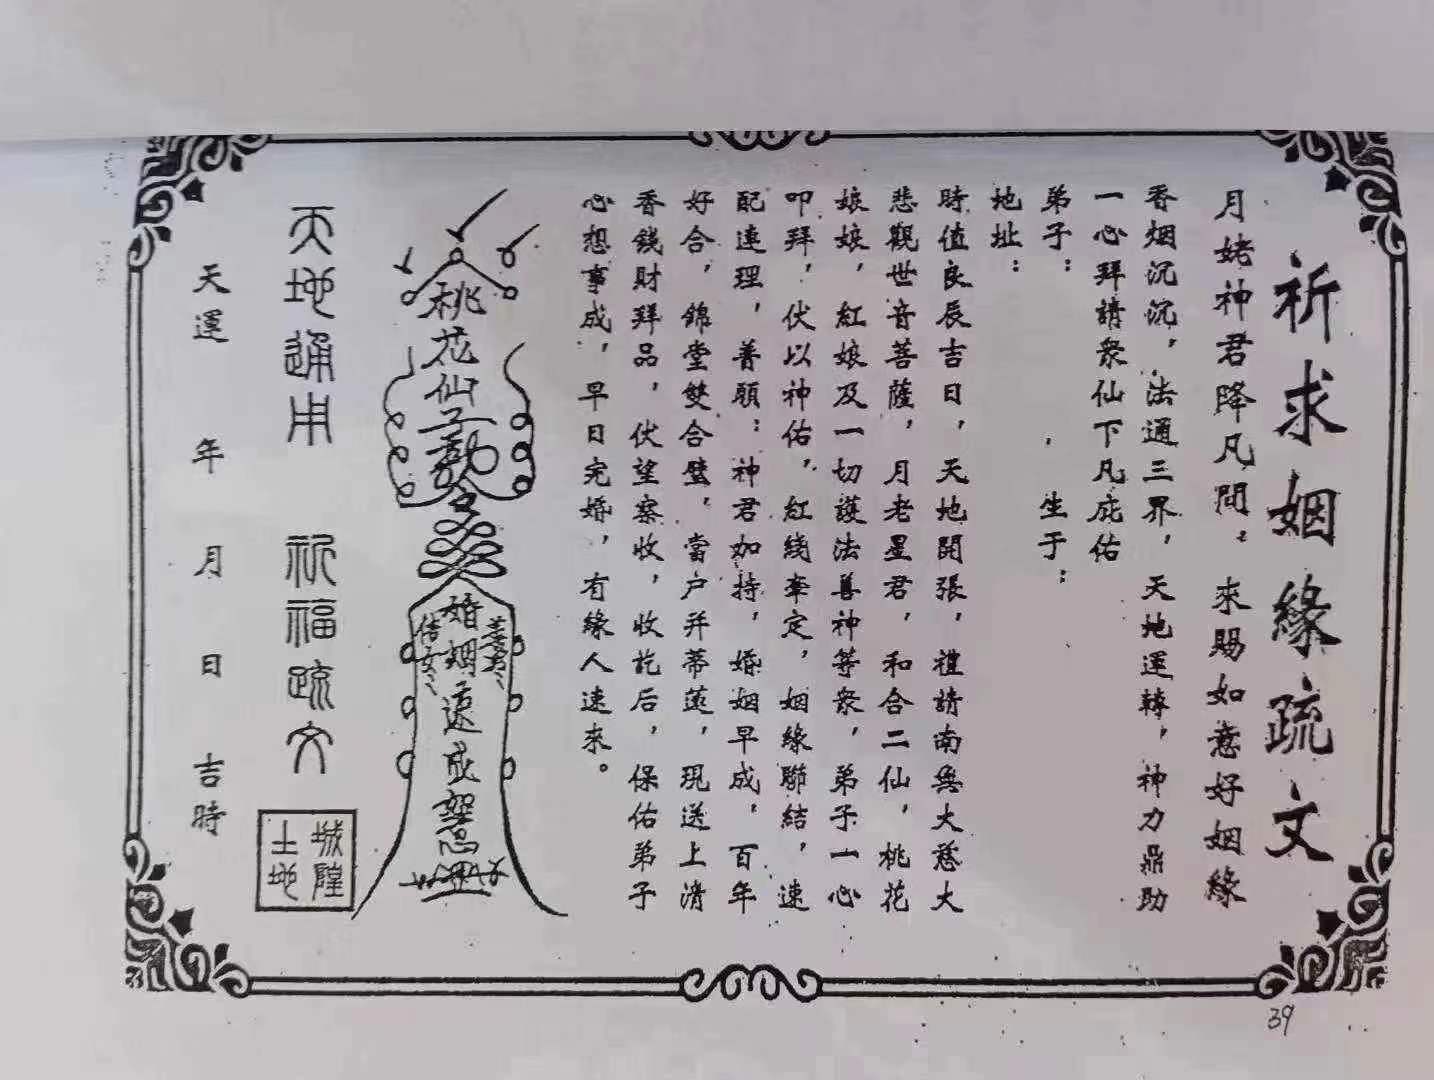 祈求姻緣疏文
月姥神君降凡間。來賜如意好姻緣
香烟沉沉，法通三界，天地運轉，神力鼎助
一心拜請衆仙下凡庇佑
弟子： ，生于：
地址：
時值良辰吉日，天地開張，禮請南無大慈大
悲觀世音菩薩，月老星君，和合二仙，桃花
娘娘，紅娘及一切護法善神等衆，弟子一心
叩拜，伏以神佑，紅綫牽定，姻緣聯結，速
配連理，普願：神君加持，婚姻早成，百年
好合，錦堂雙合璧，當户并蒂蓮，現送上清
香錢財拜品，伏望察收，收訖后，保佑弟子
心想事成，早日完婚，有緣人速來。
桃花仙子
婚姻速成
天地通用 祈福疏文
城隍
土地
天運 年 月 日 吉時
39